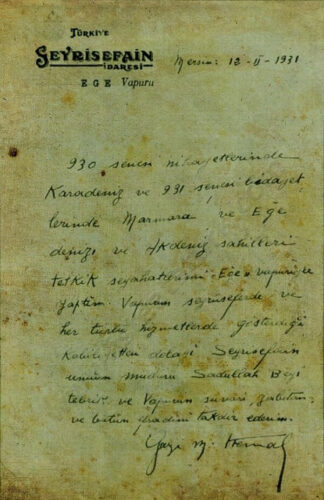 TÜRKİYE
SEYRİSEFAİN
İDARESİ
EGE Vapuru
Mersin: 12-II-1931
930 senesi nihayetlerinde
Karadeniz ve 931 senesi bidayet
lerinde Marmara ve Ege
denizi ve Akdeniz sahilleri
tetkik seyahatlerimi Ege vapurile
yaptım. Vapurun seyrüseferde ve
her türlü hizmetlerde gösterdiği
kabiliyetten dolayı Seyrisefain
umum müdürü Sadullah Beyi
tebrik ve Vapurun süvari, zabitan
ve bütün efradını takdir ederim.
Gazi M. Kemal